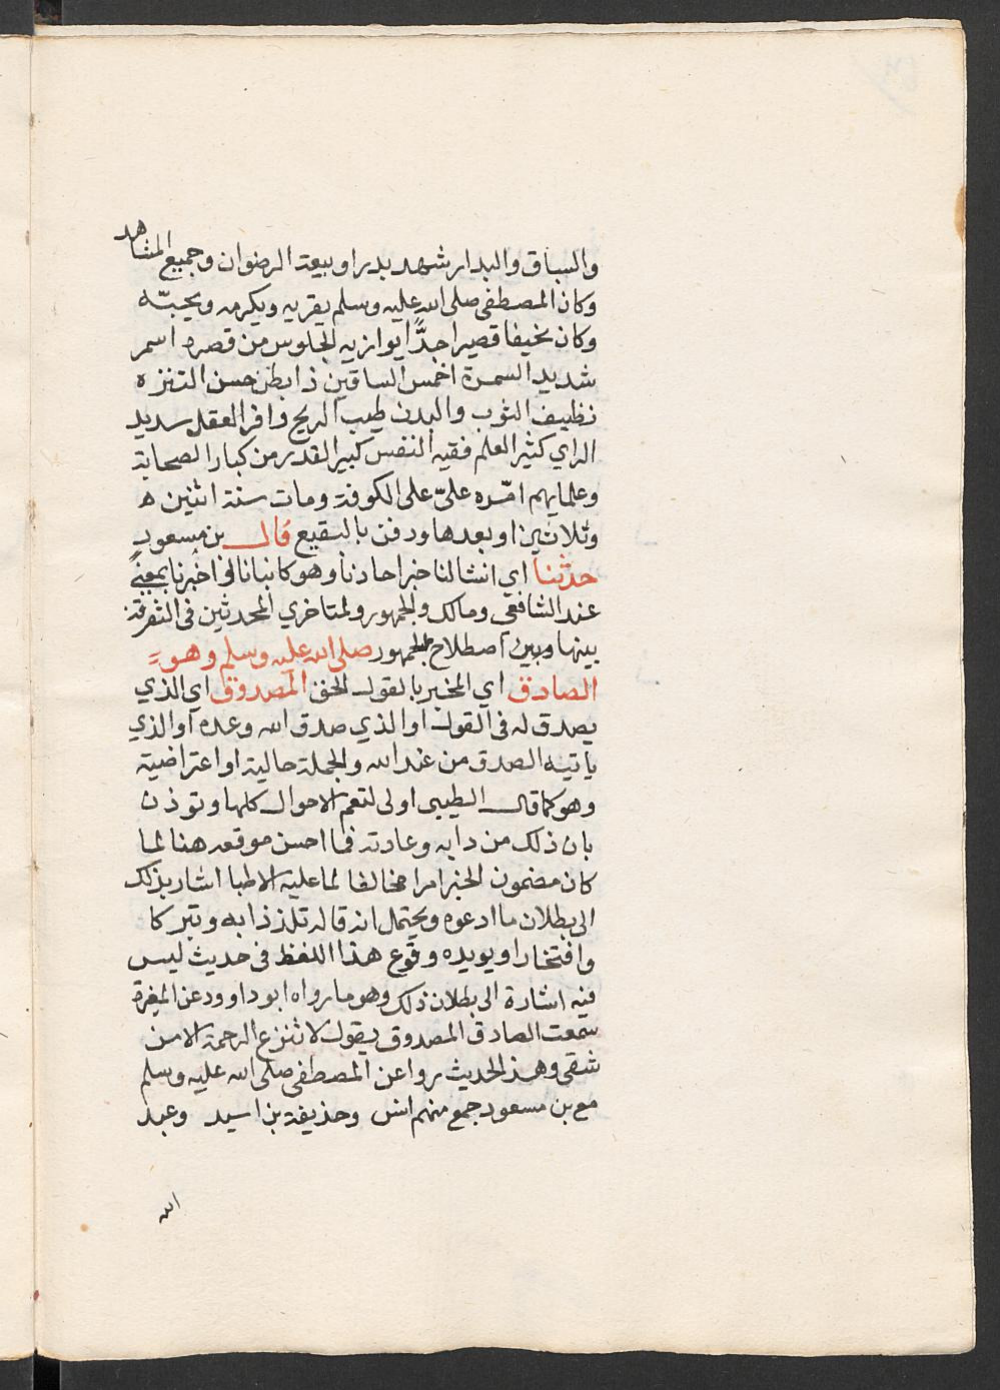 والسباق والبدار شهد بدرا وبيعة الرضوان وجميع المشاهد
وكان المصطفى صلى الله عليه وسلم يقربه ويكرمه ويحبه
وكان نحيفا قصيرا جدًّا يوازيه الجلوس من قصره اسمر
شديد السمرة احمس الساقين ذا بطن حسن التنزه
نظيف الثوب والبدن طيب الريح وافر العقل سديد
الراي كثير العلم فقيه النفس كبير القدر من كبار الصحابة
وعلمايهم امّره عليّ على الكوفة ومات سنة اثنين ه
وثلاثين او بعدها ودفن بالبقيع قال بن مسعود
حدثنا اي انشا لنا خبرا حادثا وهو كانبانا واخبرنا بمعنى
عند الشافعي ومالك والجمهور ولمتاخري المحدثين في التفرقة
بينها وبين اصطلاح الجمهور صلى الله عليه وسلم وهو
الصادق اي المخبر بالقول الحق المصدوق اي الذي
يصدق له في القول او الذي صدق الله وعده او الذي
ياتيه الصدق من عند الله والجملة حالية او اعتراضية
وهو كما قال الطيبي اولى لتعم الاحوال كلها وتوذن
بان ذلك من دابه وعادته فما احسن موقعه هنا لما
كان مضمون الخبر امرا مخالفا لما عليه الاطبا اشار بذلك
الى بطلان ما ادعوه ويحتمل انه قاله تلذذا به وتبركا
وافتخارا ويويده وقوع هذا اللفظ في حديث ليس
فيه اشارة الى بطلان ذلك وهو ما رواه ابو داوود عن المغيرة
سمعت الصادق المصدوق يقول لا تنزع الرحمة الا من
شقي وهذا الحديث روا عن المصطفى صلى الله عليه وسلم
مع بن مسعود جمع منهم انس وحذيفة بن اسيد وعبد
الله